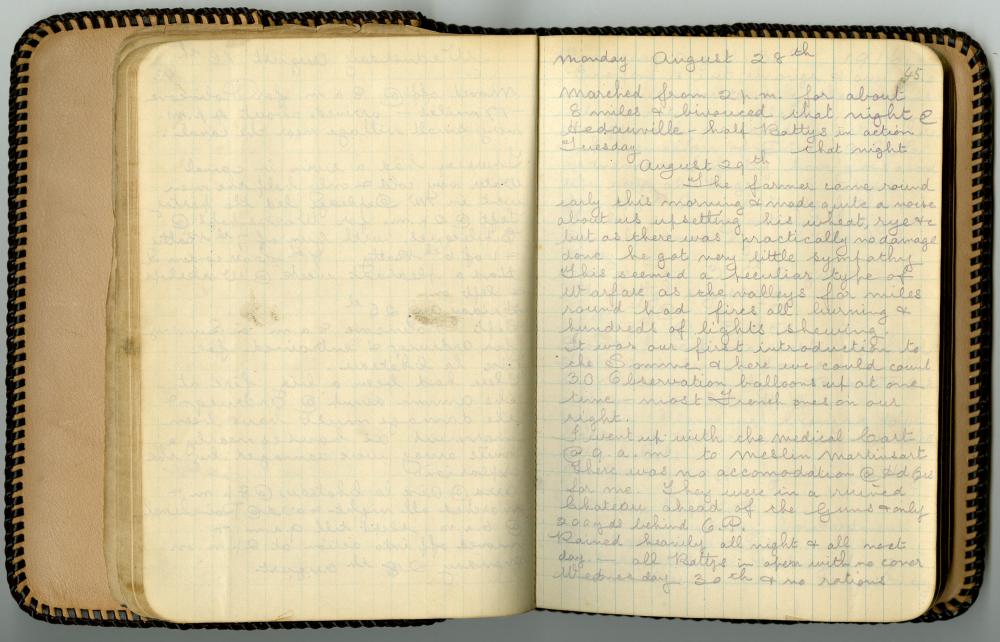 Monday August 28th
45
Marched from 2 p.m. for about
8 miles & bivouced that night @
Hedauville - half Battys in action
Tuesday that night
August 29th
The farmer came round
early this morning & made quite a noise
about us upsetting his wheat, rye &c
but as there was practically no damage
done he got very little sympathy
This seemed a peculiar type of
Warfare as the valleys for miles
round had fires all burning &
hundreds of lights shewing.
It was our first introduction to
the Somme & here we could count
30 Observation balloons up at one
time - most French ones on our
right.
I went up with the medical Cart
@ 9. a.m to Meslin Martinsart
There was no accomodation @ Hd Qrs
for me. They were in a ruined
Chateau ahead of the Guns & only
200 yds behind O.P.
Rained heavily all night & all next
day - all Battys in open with no cover
Wednesday 30th & no rations